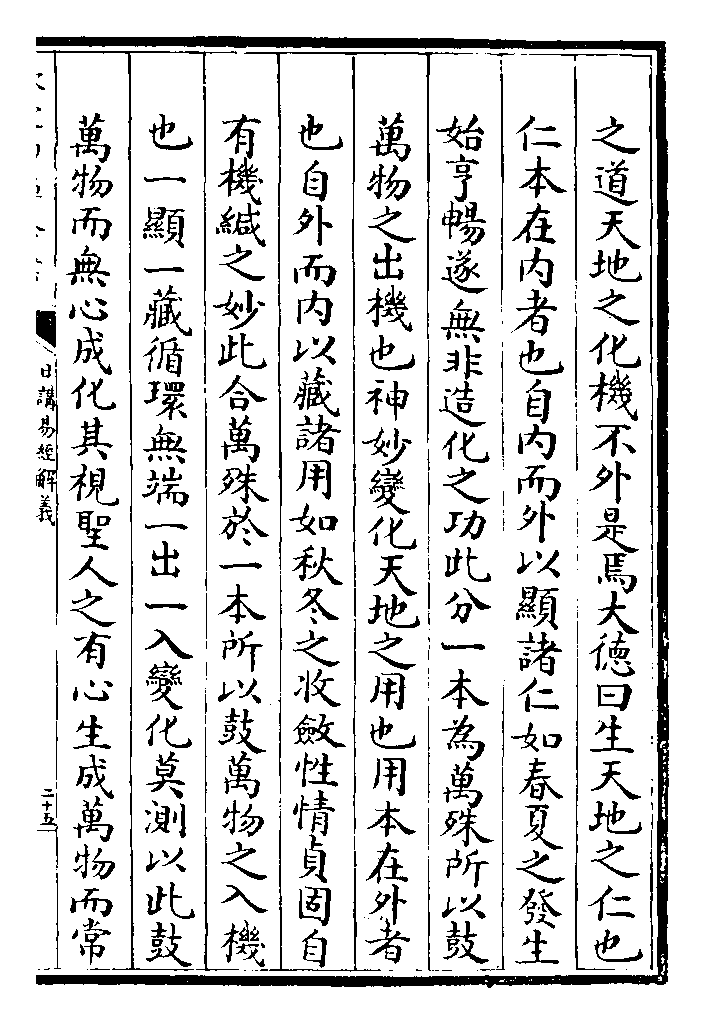 之道天地之化機不外是焉大徳曰生天地之仁也
仁本在内者也自内而外以顯諸仁如春夏之發生
始亨暢遂無非造化之功此分一本為萬殊所以鼓
萬物之出機也神妙變化天地之用也用本在外者
也自外而内以藏諸用如秋冬之收斂性情貞固自
有機緘之妙此合萬殊於一本所以鼓萬物之入機
也一顯一藏循環無端一出一入變化莫測以此鼓
萬物而無心成化其視聖人之有心生成萬物而常
日講易經解義
二十五